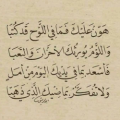 هون عليك فما في اللوح قد كتبا
واللوم يورثك الأحزان والتعبا
فاسعد بما في يديك اليوم من أمل
ولا تفكر بماضيك الذي ذهبا